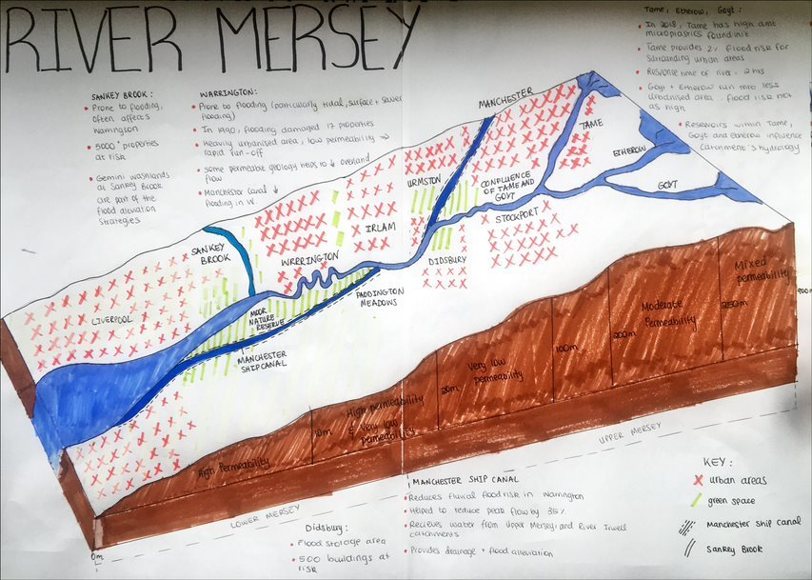 RIVER MERSEY
SANKEY BROOK:
Prone to flooding,
often affects
Warrington
properties
at risk
Gemini washlands
at Sankey Brook
are part of the
flood alleviation
strategies
WARRINGTON:
Prone to flooding (particularly tidal, surface + sewer
flooding)
In 1990, flooding damaged 17 properties
Heavily urbanised area, low permeability →
rapid run-off
some permeable geology helps to ↓ overland
flow
Manchester canal ↓
flooding in W.
Tame, Etherow, Goyt:
In 2018, Tame has high amt
microplastics found in it
Tame provides flood risk for
surrounding urban areas
Response time of riva - 2 hrs
Goyt + Etherow run thro less
urbanised area flood risk not
as high
Reservoirs within Tame,
Goyt and etherow influence
catchment's hydrology
MANCHESTER
TAME
ETHEROW
GOYT
URMSTON
CONFLUENCE
OF TAME AND
GOYT
STOCKPORT
IRLAM
DIDSBURY
SANKEY
BROOK
WRRINGTON
PADDINGTON
MEADOWS
LIVERPOOL
MOOR
NATURE
RESERVE
MANCHESTER
SHIP CANAL
Mixed
permeability
Moderate
Permeability
200m
100m
Very low
permeability
High permeability
& Very low
permeability
10m
High Permeability
0m
LOWER MERSEY
UPPER MERSEY
Didsbury:
Flood storage area
500 buildings at
risk
MANCHESTER SHIP CANAL
Reduces fluvial flood risk in Warrington
Helped to reduce peak flow by 35%
Recieves water from Upper Mersey and River Irwell
catchments
Provides drainage + flood alleviation
KEY:
urban areas
green space
Manchester Ship canal
Sankey Brook